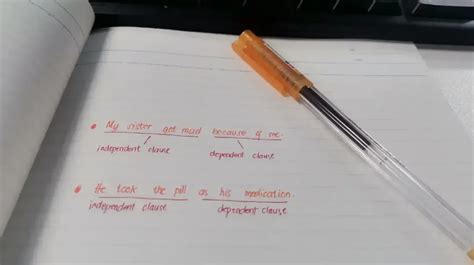 • My sister got mad because of me.
independent clause dependent clause
• He took the pill as his medication.
independent clause dependent clause